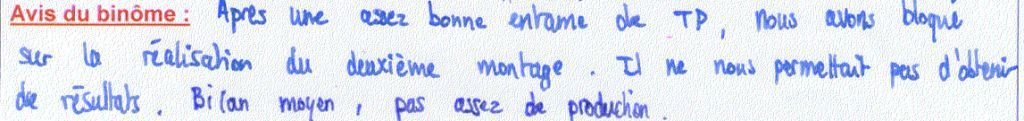 Avis du binôme : Après une assez bonne entame de TP, nous avons bloqué
sur la réalisation du deuxième montage. Il ne nous permettait pas d'obtenir
de résultats. Bilan moyen, pas assez de production.